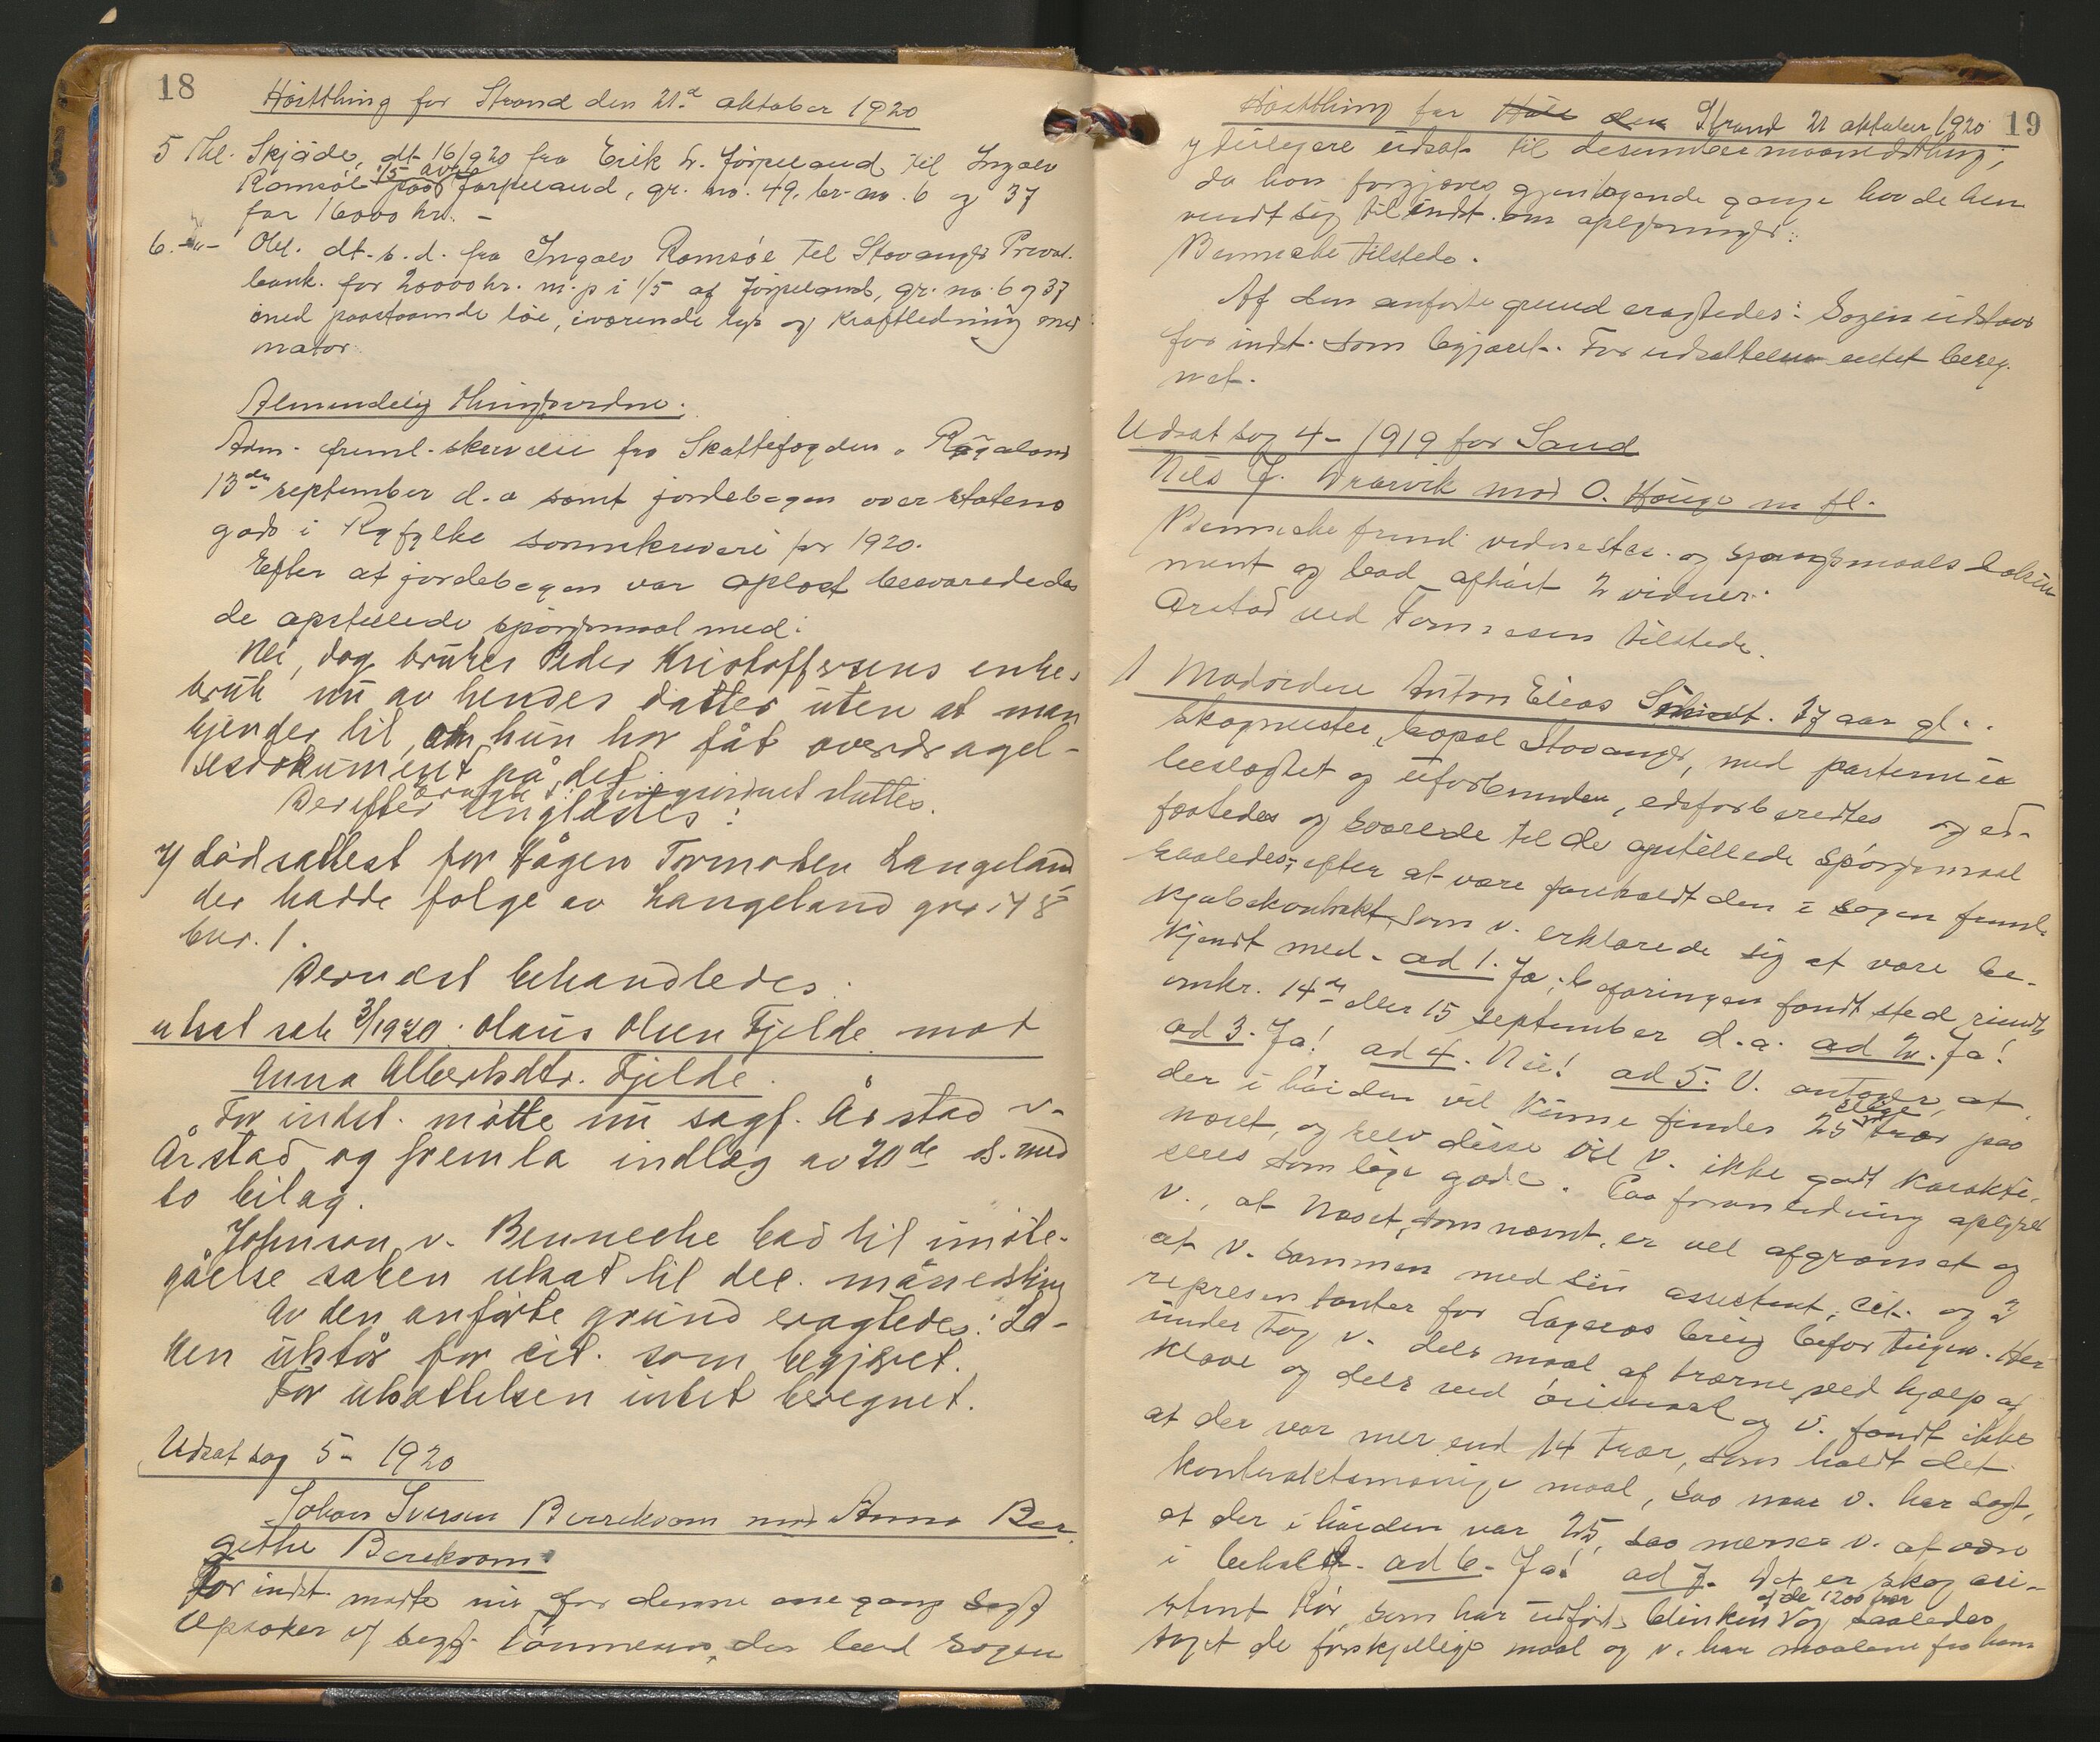 18
Høstthing for Strand den 21.d oktober 1920
5 Thl. Skjøde, dt. 16/9 20 fra Erik L. Jørpeland til Ingolv
Ramsøe 1/5 av Jørpeland, gr. no. 49, br.-no. 6 og 37
for 16000 kr. -
6. -"- Obl. dt. s. d. fra Ingolv Ramsøe til Stavanger Privat-
bank. for 20000 kr. m. p i 1/5 af Jørpeland, gr. no. 6 og 37
med paastaaende löe, iværende lys og Kraftledning med
motor.
Almindelig thing
Adm. freml. skrivelse fra Skattefogden i Rogaland
13de september d. a samt jordebogen over statens
gods i Ryfylke sorenskriveri for 1920.
Efter at jordebogen var oplæst besvaredes
de opstillede spörsmaal med:
Nei, dog brukes Peder Kristoffersens enkes
bruk nu av hendes datter uten at man
kjender til, om hun har fåt overdragel-
sesdokument på det.
Derefter tinglæstes:
7) dödsattest for Hågen Tormodsen Langeland
der hadde folge av Langeland gnr. 48
bnr. 1.
Dernæst behandledes
utsat sak 3/1920: Olaus Olsen Fjelde mot
Anna Albertsdtr. Fjelde.
For indst. møtte nu sagf. Årstad v-
Årstad og fremla indlæg av 20de ds. med
to bilag.
Johnson v. Benneche bad til imöte-
gåelse saken utsat til dec. månedsting
Av den anförte grund eragtedes: Sa-
ken utstår for cit. som begjæret.
For utsættelsen intet beregnet.
Udsat sag 5- 1920
Johan Iversen Berrekvam mod Anna Ber
gethe Berekvam.
For indst. mødte nu for denne ene gang Sagf
Opsøker v/ sagf. Tönnesen, der bad sagen
19
Høstthing for Strand 21 oktober 1920
yderligere udsat til desember maanedsthing,
da han forgjæves gjentagende gange havde hen
vendt sig til indst. om oplysninger.
Benneche tilstede.
Af den anførte grund eragtedes: Sagen udstaar
for indst. som begjæret. For udsættelsen intet bereg
net.
Udsat sag 4- 1919 for Sand
Nils J. Drarvik mod O. Hauge m fl.
Benneche freml. vidnestev. og spørgsmaals
ment og bad afhørt 2 vidner.
Arstad ved Tønnesen tilstede.
1 Modvidne Anton Elias Schiødt. 37 aar gl.
Skogmester, bopæl Stavanger, med parterne ube
beslægtet og uforbunden, edsforberedtes og ed-
fæstedes og svarede til de opstillede spørgsmaal
saaledes; efter at være foreholdt den i sagen freml.
kjøbekontrakt, som v. erklærede sig at være be-
kjendt med. ad 1. Ja; befaringen fandt sted rundt
omkr. 14de eller 15 september d. a. ad 2. Ja!
ad 3. Ja! ad 4. Nei! ad 5. V. antager, at
der i høiden vil kunne findes 25 slige trær paa
næset, og selv disse vil v. ikke godt karakti-
seres som lige gode. Paa foranledning oplyser
v., at næset, som nævnt, er vel afgrænset og
at v. sammen med sin assistent, cit. og 2
representanter for Sagaas brug befor teigen. Her
under tog v. dels maal af trærne ved hjælp af
klave og dels ved øiemaal og v. fandt ikke
at der var mer end 14 trær, som holdt det
kontraktsmæssige maal, saa naar v. har sagt,
at der i høiden var 25, saa menes v. at være
i behold. ad 6. Ja! ad 7. Det er skog assi-
stent som har udført blinken af de 1200 trær og saaledes
taget de forskjellige maal og v. har maalene fra ham